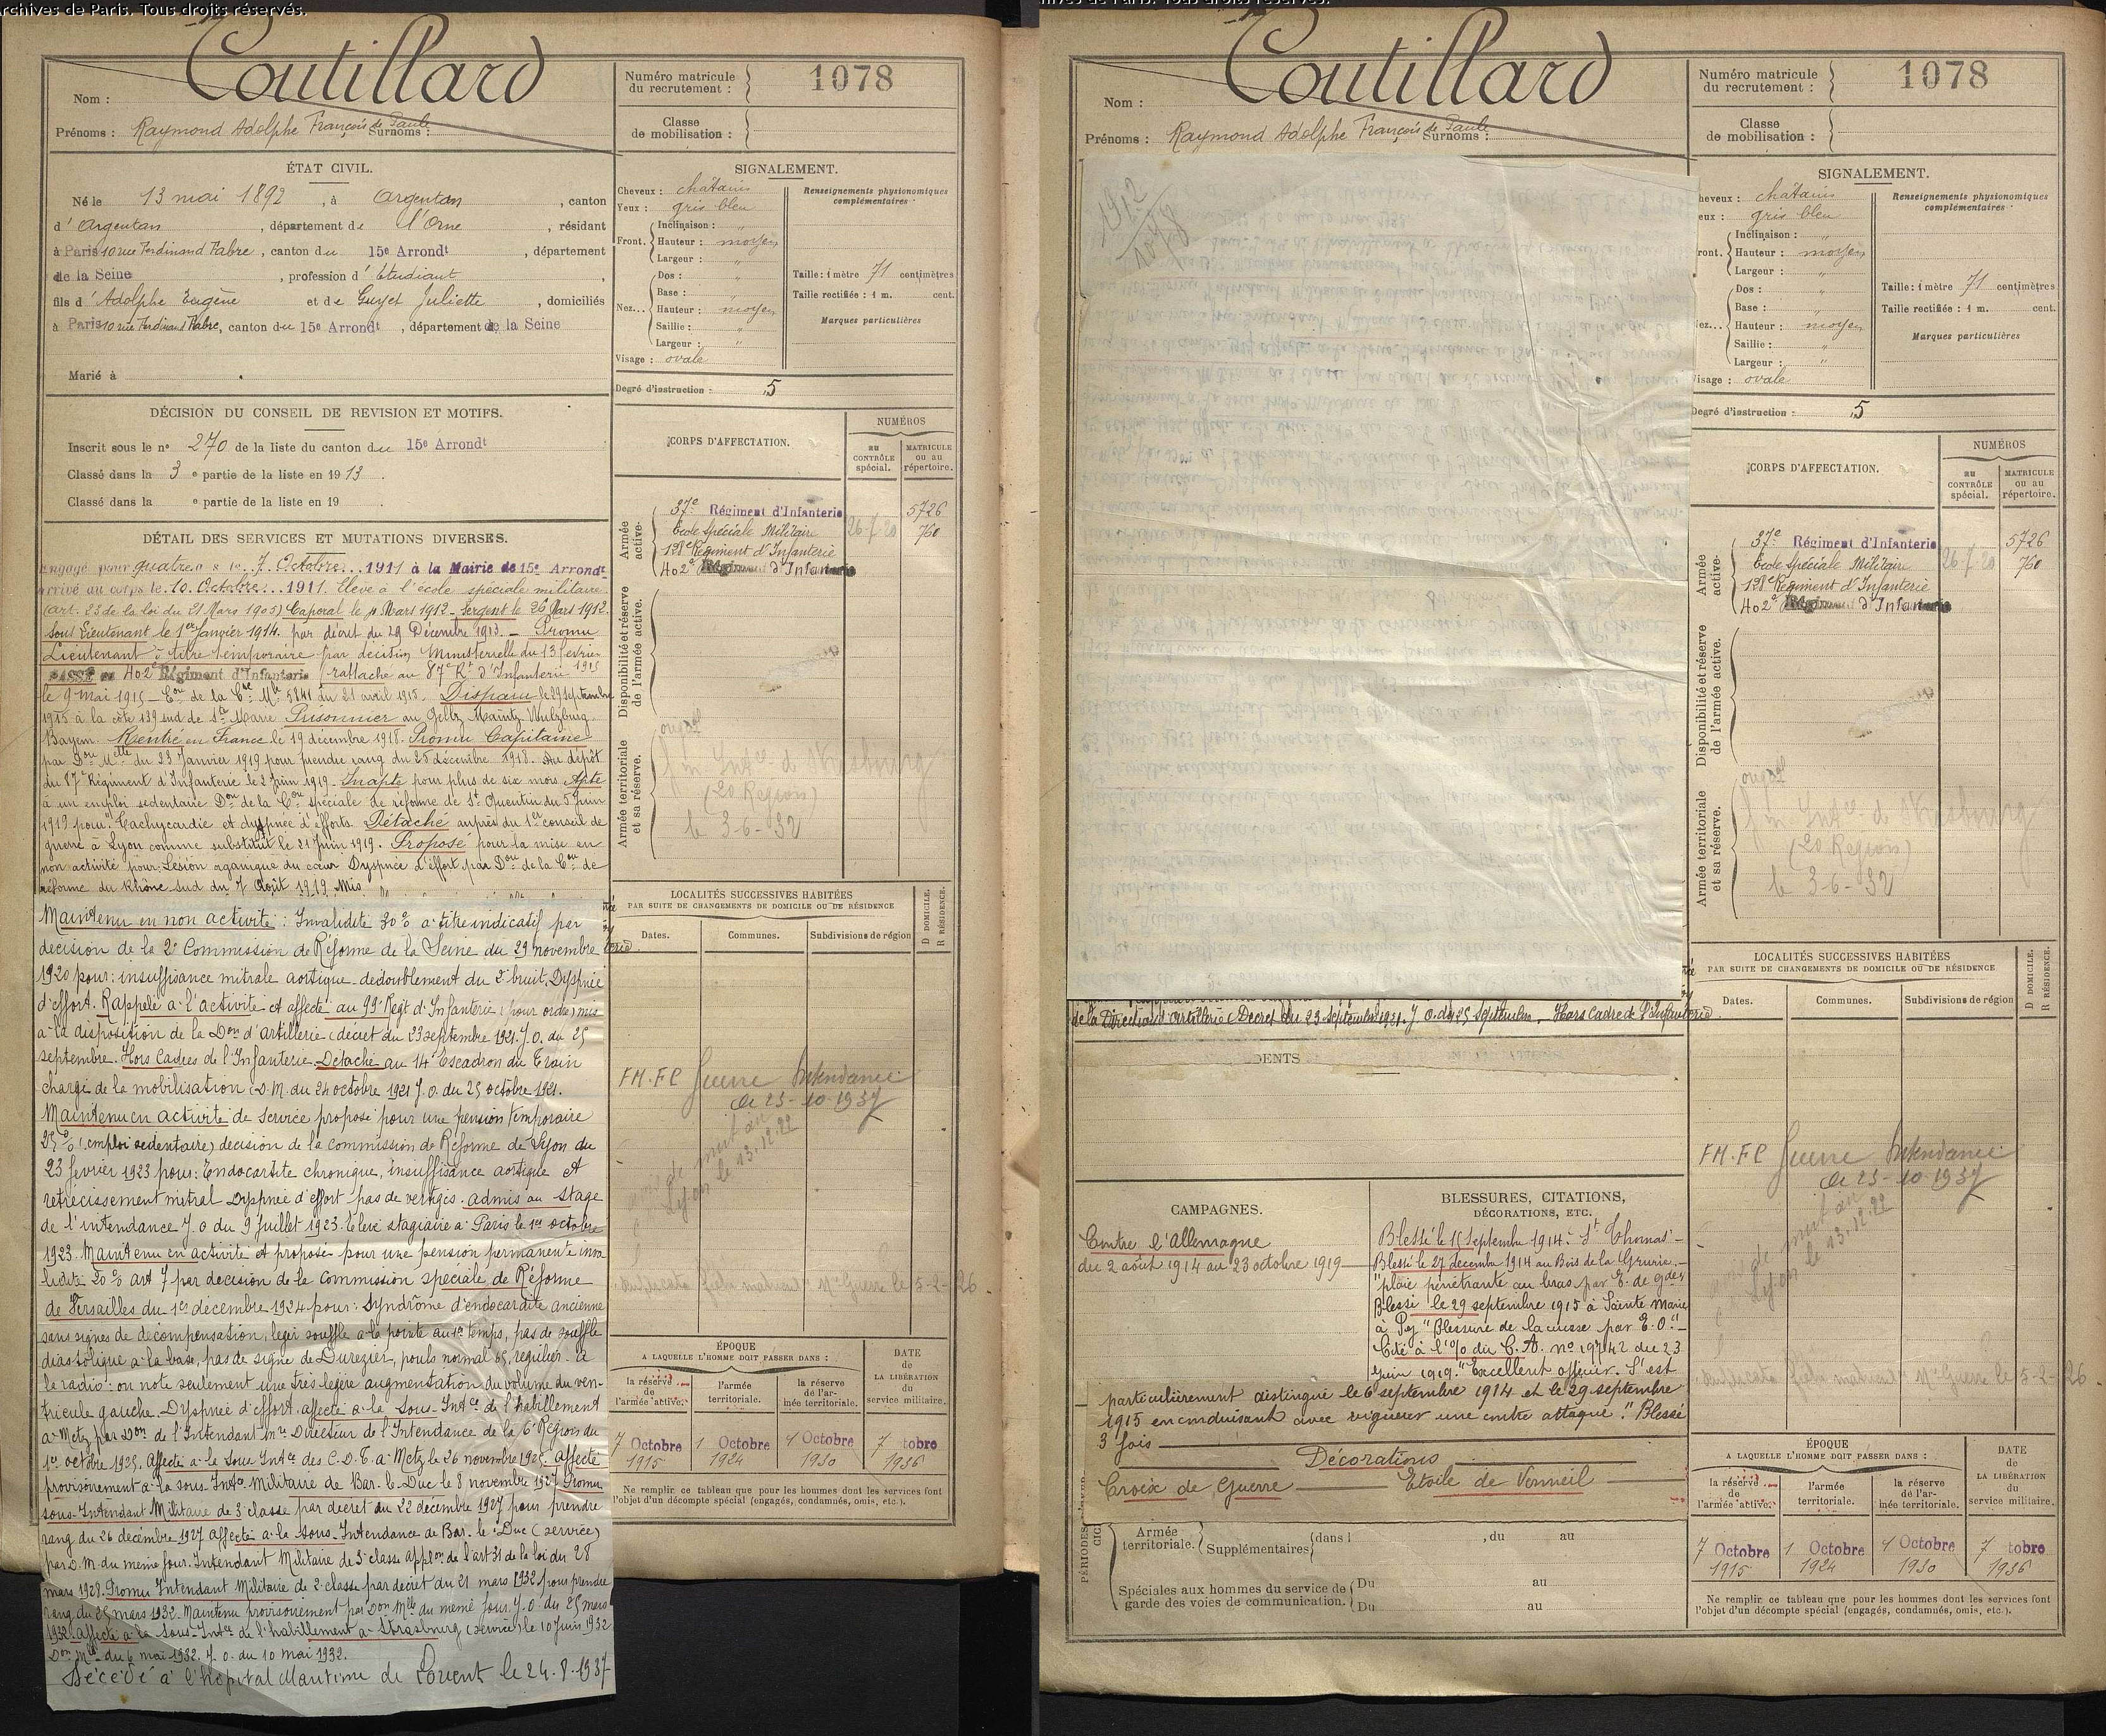 Archives de Paris. Tous droits réservés.
Nom : Coutillard
Prénoms : Raymond Adolphe François de Paule Surnoms :
Numéro matricule du recrutement : 1078
Classe de mobilisation :
ÉTAT CIVIL.
Né le 13 mai 1892, à Argentan, canton
d'Argentan, département de l'Orne, résidant
à Paris 10 rue Ferdinand Fabre, canton du 15e Arrondt, département
de la Seine, profession d'Etudiant
fils d'Adolphe Eugène et de Guyet Juliette, domiciliés
à Paris 10 rue Ferdinand Fabre, canton du 15e Arrondt, département de la Seine
Marié à
DÉCISION DU CONSEIL DE REVISION ET MOTIFS.
Inscrit sous le n° 270 de la liste du canton du 15e Arrondt
Classé dans la 3 e partie de la liste en 1913.
Classé dans la e partie de la liste en 19 .
DÉTAIL DES SERVICES ET MUTATIONS DIVERSES.
Engagé pour quatre ans le 7 Octobre 1911 à la Mairie du 15e Arrondt
arrivé au corps le 10 Octobre 1911. Elève à l'école spéciale militaire
(art. 23 de la loi du 21 Mars 1905) Caporal le Mars 1912 - Sergent le 26 Mars 1912.
Sous Lieutenant le 1er Janvier 1914. par décret du 29 Décembre 1913. - Promu
Lieutenant à titre temporaire par décision Ministérielle du 13 février
1915
PASSÉ au 402e Régiment d'Infanterie (rattaché au 87e Rt d'Infanterie
le 9 mai 1915 - Con de la Cre Mle 5841 du 21 avril 1915. Disparu le 29 septembre
1915 à la côte 139 sud de Ste Marie Prisonnier au Maintz Wulzburg
Bayern. Rentré en France le 19 décembre 1918. Promu Capitaine
par Don Mlle du 23 Janvier 1919 pour prendre rang du 25 décembre 1918. Au dépôt
du 87e Régiment d'Infanterie le 2 Juin 1919. Inapte pour plus de six mois Apte
à un emploi sédentaire Don de la Con spéciale de réforme de St Quentin du 5 Juin
1919 pour: Tachycardie et dyspnée d'efforts. Détaché auprès du 1er conseil de
guerre à Lyon comme substitut le 21 Juin 1919. Proposé pour la mise en
non activité pour: Lésion organique du cœur Dyspnée d'effort par Don de la Con de
réforme du Rhône sud du 7 Août 1919. Mis
Maintenu en non activité : Invalidité 30% à titre indicatif par
décision de la 2e Commission de Réforme de la Seine du 29 novembre
1920 pour: insuffisance mitrale aortique dédoublement du 2e bruit, Dyspnée
d'effort. Rappelé à l'activité et affecté au 99e Régt d'Infanterie (pour ordre) mis
à la disposition de la Don d'Artillerie (décret du 23 septembre 1921. J.O. du 25
septembre. Hors Cadres de l'Infanterie. Détaché au 14e Escadron du Train
chargé de la mobilisation (D.M. du 24 octobre 1921 J.O. du 25 octobre 1921.
Maintenu en activité de service proposé pour une pension temporaire
25% (emploi sédentaire) décision de la commission de Réforme de Lyon du
23 février 1923 pour: Endocardite chronique, insuffisance aortique et
rétrécissement mitral Dyspnée d'effort pas de vertiges. admis au stage
de l'intendance J.O du 9 Juillet 1923. Elève stagiaire à Paris le 1er octobre
1923. Maintenu en activité et proposé pour une pension permanente inva
lidité 20% art 7 par décision de la Commission spéciale de Réforme
de Versailles du 1er décembre 1924 pour: Syndrôme d'endocardite ancienne
sans signes de décompensation, léger souffle à la pointe au 1er temps, pas de souffle
diastolique à la base, pas de signe de Durozier, pouls normal 65, régulier. à
la radio: on note seulement une très légère augmentation du volume du ven-
tricule gauche. Dyspnée d'effort. affecté à la Sous-Intce de l'habillement
à Metz par Don de l'Intendant Mre Directeur de l'Intendance de la 6e Région du
1er octobre 1925. Affecté à la Sous Intce des C.D.T. à Metz le 26 novembre 1925. Affecté
provisoirement à la sous-Intce Militaire de Bar-le-Duc le 8 novembre 1927 Promu
sous-Intendant Militaire de 3e classe par décret du 22 décembre 1927 pour prendre
rang du 26 décembre 1927 affecté à la Sous-Intendance de Bar-le-Duc (service)
par D.M. du même jour. Intendant Militaire de 3e classe appon de l'art 31 de la loi du 28
mars 1928. Promu Intendant Militaire de 2e classe par décret du 21 mars 1932 pour prendre
rang du 25 mars 1932. Maintenu provisoirement par Don Mlle du même jour. J.O. du 25 mars
1932. affecté à la Sous-Intce de l'habillement à Strasbourg (service) le 10 Juin 1932
Don Mlle du 6 mai 1932. J.O. du 10 mai 1932.
Décédé à l'hôpital Maritime de Lorient le 24.8.1937
SIGNALEMENT.
Cheveux : châtains
Yeux : gris bleu
Front. Inclinaison : "
Hauteur : moyen
Largeur : "
Nez... Dos : "
Base : "
Hauteur : moyen
Saillie : "
Largeur : "
Visage : ovale
Renseignements physionomiques complémentaires :
Taille : 1 mètre 71 centimètres
Taille rectifiée : 1 m. cent.
Marques particulières
Degré d'instruction : 5
CORPS D'AFFECTATION.
NUMÉROS
au CONTRÔLE spécial.
MATRICULE ou au répertoire.
Armée active.
37e Régiment d'Infanterie 5726
Ecole Spéciale Militaire 760
128e Régiment d'Infanterie
402e Régiment d'Infanterie
26-7-20
Disponibilité et réserve de l'armée active.
Armée territoriale et sa réserve.
Intce de Strasbourg
(20 Région)
le 3-6-32
LOCALITÉS SUCCESSIVES HABITÉES
PAR SUITE DE CHANGEMENTS DE DOMICILE OU DE RÉSIDENCE
Dates. Communes. Subdivisions de région D DOMICILE. R RÉSIDENCE.
FM.FC Guerre Intendance
le 25-10-1937
Lyon le 13.12.22
Mre Guerre le 5-2-26
ÉPOQUE
A LAQUELLE L'HOMME DOIT PASSER DANS :
DATE DE LA LIBÉRATION du service militaire.
la réserve de l'armée active. l'armée territoriale. la réserve de l'armée territoriale.
7 Octobre 1915
1 Octobre 1924
1 Octobre 1930
7 tobre 1936
Ne remplir ce tableau que pour les hommes dont les services font
l'objet d'un décompte spécial (engagés, condamnés, omis, etc.).
hives de Paris. Tous droits réservés.
Nom : Coutillard
Prénoms : Raymond Adolphe François de Paule Surnoms :
Numéro matricule du recrutement : 1078
Classe de mobilisation :
1912
de la Direction d'artillerie (Décret du 23 septembre 1921. J.O. du 25 Septembre. Hors Cadre de l'Infanterie
DENTS
CAMPAGNES.
Contre l'Allemagne
du 2 août 1914 au 23 octobre 1919
BLESSURES, CITATIONS,
DÉCORATIONS, ETC.
Blessé le 15 Septembre 1914 à St Thomas -
Blessé le 27 décembre 1914 au Bois de la Grurie. -
"plaie pénétrante au bras par E. de gdes
Blessé le 29 septembre 1915 à Sainte Marie
à Py "Blessure de la cuisse par E.O." -
Cité à l'o/o du C.A. n° 19742 du 23
Juin 1919. "Excellent officier. S'est
particulièrement distingué le 6 septembre 1914 et le 29 septembre
1915 en conduisant avec vigueur une contre attaque." Blessé
3 fois
Décorations
Croix de Guerre - Etoile de Vermeil
PÉRIODES
Armée territoriale. Supplémentaires dans l , du au
Spéciales aux hommes du service de garde des voies de communication. Du au
Du au
SIGNALEMENT.
heveux : châtains
eux : gris bleu
ront. Inclinaison : "
Hauteur : moyen
Largeur : "
Dos : "
Base : "
ez... Hauteur : moyen
Saillie : "
Largeur : "
isage : ovale
Renseignements physionomiques complémentaires :
Taille : 1 mètre 71 centimètres
Taille rectifiée : 1 m. cent.
Marques particulières
Degré d'instruction : 5
CORPS D'AFFECTATION.
NUMÉROS
au CONTRÔLE spécial.
MATRICULE ou au répertoire.
Armée active.
37e Régiment d'Infanterie 5726
Ecole Spéciale Militaire 760
128e Régiment d'Infanterie
402e Régiment d'Infanterie
26-7-20
Disponibilité et réserve de l'armée active.
Armée territoriale et sa réserve.
Intce de Strasbourg
(20 Région)
le 3-6-32
LOCALITÉS SUCCESSIVES HABITÉES
PAR SUITE DE CHANGEMENTS DE DOMICILE OU DE RÉSIDENCE
Dates. Communes. Subdivisions de région D DOMICILE. R RÉSIDENCE.
FM.FC Guerre Intendance
le 25-10-1937
Lyon le 13.12.22
Mre Guerre le 5-2-26
ÉPOQUE
A LAQUELLE L'HOMME DOIT PASSER DANS :
DATE DE LA LIBÉRATION du service militaire.
la réserve de l'armée active. l'armée territoriale. la réserve de l'armée territoriale.
7 Octobre 1915
1 Octobre 1924
1 Octobre 1930
7 tobre 1936
Ne remplir ce tableau que pour les hommes dont les services font
l'objet d'un décompte spécial (engagés, condamnés, omis, etc.).